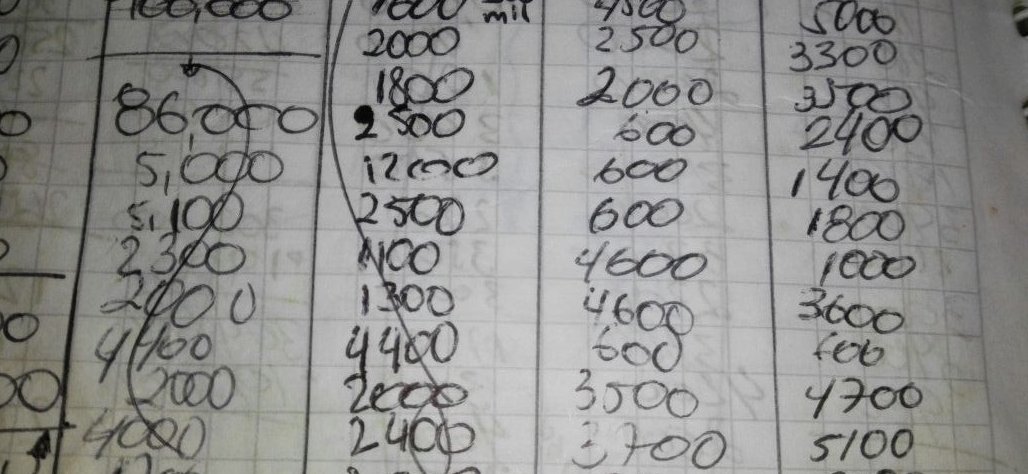 100,000 1600 mil 4500 5000
2000 2500 3300
86,000 1800 2000 3500
5,000 2500 600 2400
5,100 12000 600 1400
2,300 2500 600 1800
2000 1100 4600 1000
4400 1300 4600 3600
2000 4400 600 600
4000 2000 3500 4700
2400 3700 5100